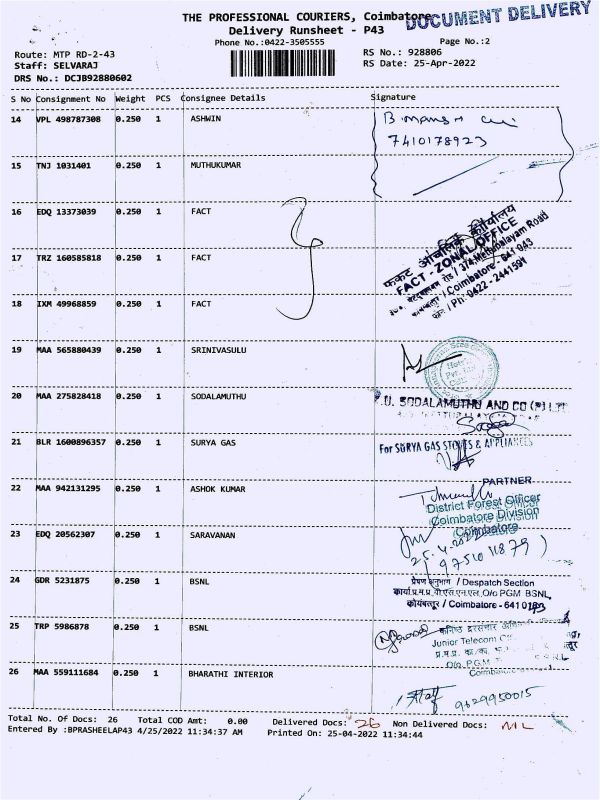 DOCUMENT DELIVERY
THE PROFESSIONAL COURIERS, Coimbatore
Delivery Runsheet - P43
Phone No.:0422-3505555
Page No.:2
Route: MTP RD-2-43
RS No.: 928806
Staff: SELVARAJ
RS Date: 25-Apr-2022
DRS No.: DCJB92880602
S No Consignment No Weight PCS Consignee Details Signature
14 VPL 498787308 0.250 1 ASHWIN
7410178923
15 TNJ 1031401 0.250 1 MUTHUKUMAR
16 EDQ 13373039 0.250 1 FACT
17 TRZ 160585818 0.250 1 FACT
18 IXM 49968859 0.250 1 FACT
फैक्ट आंचलिक कार्यालय
FACT - ZONAL OFFICE
/ 374, Mettupalayam Road
/ Coimbatore - 641 043
/ Ph: 0422 - 2441591
19 MAA 565880439 0.250 1 SRINIVASULU
20 MAA 275828418 0.250 1 SODALAMUTHU
P.U. SODALAMUTHU AND CO (P) LTD
21 BLR 1600896357 0.250 1 SURYA GAS
For SURYA GAS STOVES & APPLIANCES
PARTNER
22 MAA 942131295 0.250 1 ASHOK KUMAR
District Forest Officer
Coimbatore Division
Coimbatore
23 EDQ 20562307 0.250 1 SARAVANAN
25.4.2022
9751011879
24 GDR 5231875 0.250 1 BSNL
प्रेषण अनुभाग / Despatch Section
O/o PGM BSNL,
कोयंबत्तूर / Coimbatore - 641 043
25 TRP 5986878 0.250 1 BSNL
Junior Telecom
O/o. P.G.M.
Coimbatore
26 MAA 559111684 0.250 1 BHARATHI INTERIOR
9629950015
Total No. Of Docs: 26 Total COD Amt: 0.00 Delivered Docs: 26 Non Delivered Docs: NIL
Entered By :BPRASHEELAP43 4/25/2022 11:34:37 AM Printed On: 25-04-2022 11:34:44